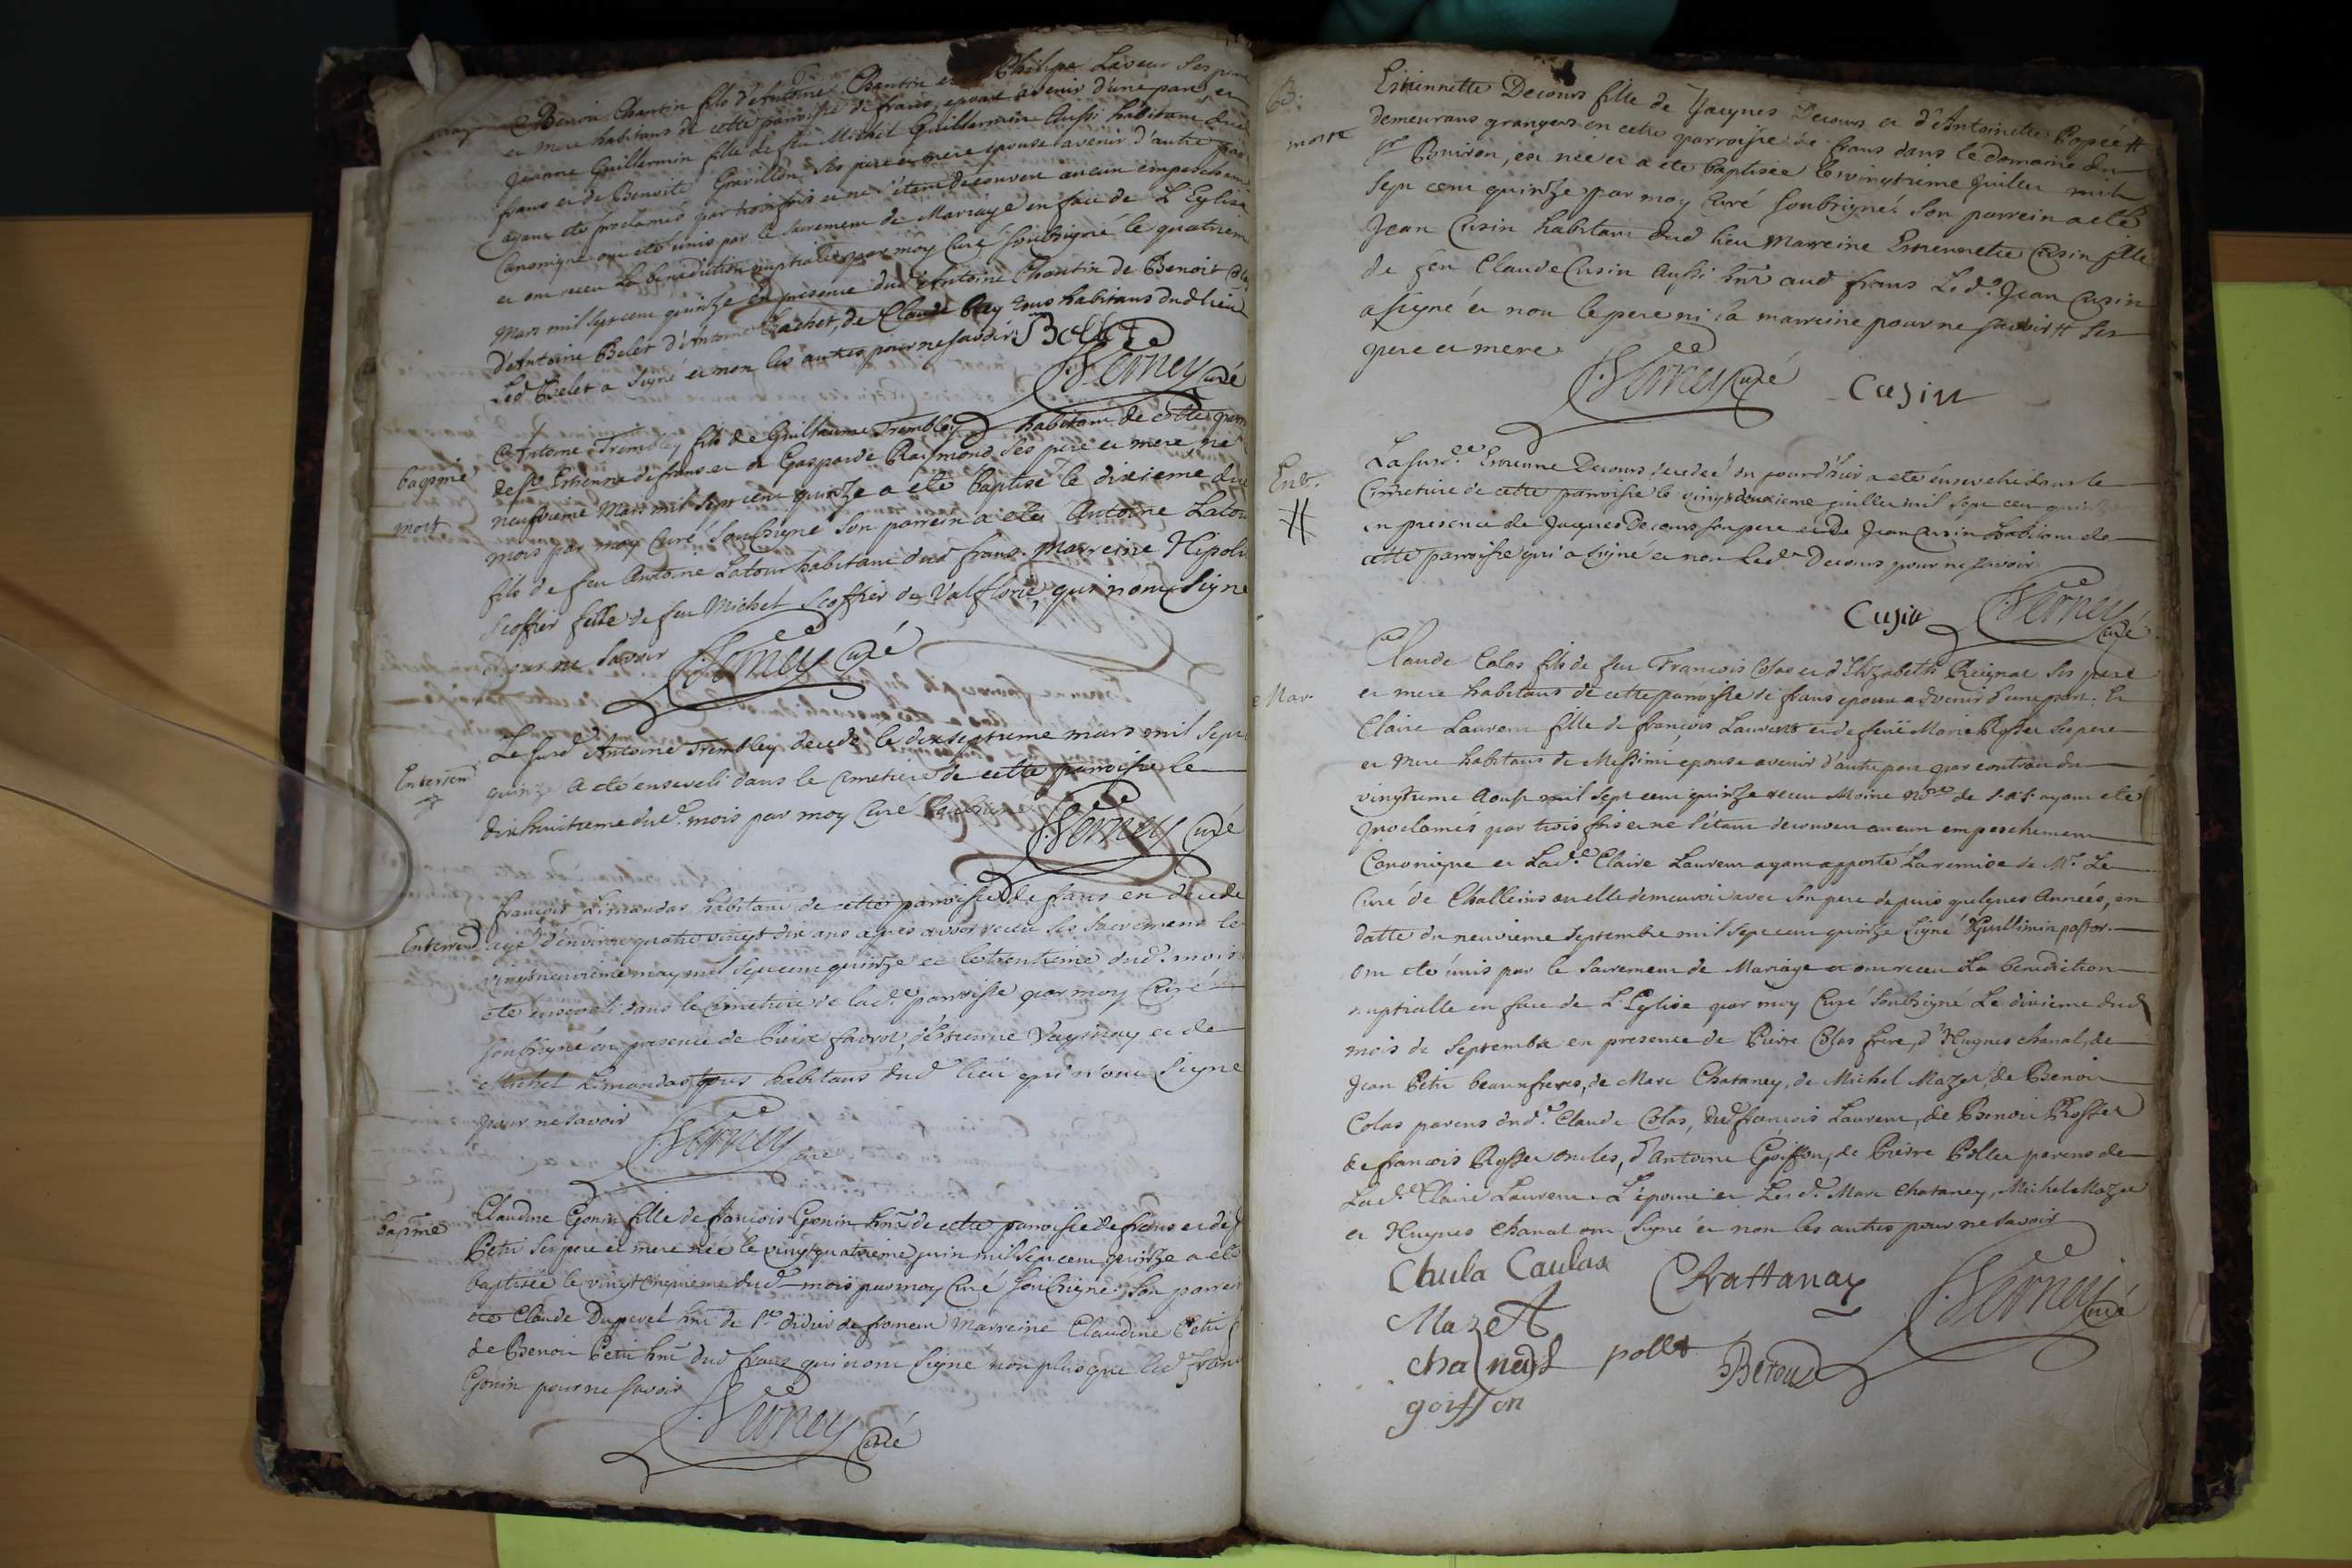 Benoit Chantin fils d'Antoine Chantin et Philipe Laveur ses pere
et mere habitans de cette parroisse de frans, epoux avenir d'une part, et
Jeanne Guillermin fille de feu Michel Guillermin Aussi habitant dud
frans et de Benoite Gravillon ses pere et mere epouse avenir d'autre par
ayant eté proclamés par trois fois et ne s'étant decouvert aucun empeschem
Canonique ont eté unis par le sacrement de Mariage en face de L'Eglise
et ont receu la benediction nuptiale par moy Curé soubsigné le quatriem
Mars mil sept cent quinze en presence dud Antoine Chantin de Benoit
d'Antoine Belet d'Antoine Rachet, de Claude Rey tous habitans dud lieu
Led Belet a signé et non les autres pour ne savoir Bellet
Verney Curé
baptme
mort
Antoine Trembley fils de Guillaume Trembley habitant de cette parr
de St Estienne de frans et de Gasparde Raymond ses pere et mere né
neufvieme Mars mil sept cent quinze a eté baptisé le dixieme dud
mois par moy Curé soubsigné son parrein a eté Antoine Latou
fils de feu Antoine Latour habitant dud frans. Marreine Hipoli
Scoffier fille de feu Michel Scoffier de Valflorie, qui n'ont signé
pour ne savoir Verney Curé
Enterrem
Le susd Antoine Trembley decedé le dixseptieme mars mil sept
quinze a eté enseveli dans le cimetiere de cette parroisse le
dixhuitieme dud. mois par moy Curé soubsig
Verney Curé
Enterrem
françois Limandas habitant de cette parroisse de frans en decede
agé d'environ quatre vingt dix ans apres avoir receu ses sacremens le
vingtneuvieme may mil sept cent quinze et le trentieme dud. mois
eté enseveli dans le Cimetiere de lad.e parroisse par moy Curé
soubsigné en presence de Pierre favrot, d'Estienne Vaginay et de
Michel Limandas tous habitans dud lieu qui n'ont signé
pour ne savoir
Verney curé
baptme
Claudine Gonin fille de françois Gonin hnt de cette parroisse de frans et de
Petit ses pere et mere née le vingtquatrieme juin mil sept cent quinze a eté
baptisée le vingt cinquieme dud mois par moy Curé soubsigné. Son parrei
eté Claude Dupevet hnt de St didier de fromen Marreine Claudine Petit
de Benoit Petit hnt dud frans qui n'ont signé non plus que led franc
Gonin pour ne savoir
Verney Curé
B.
morte
Estiennette Decours fille de Jacques Decours et d'Antoinette Papée #
demeurans grangers en cette parroisse de frans dans le domaine du
sr Buiron, est née et a eté baptisée le vingtieme juillet mil
sept cent quinze par moy Curé soubsigné. Son parrein a eté
Jean Cusin habitant dud lieu Marreine Estiennette Cusin fille
de feu Claude Cusin Aussi hnt aud frans Led. Jean Cusin
a signé et non le pere ni la marreine pour ne savoir # ses
pere et mere.
Verney Curé Cusin
Entr.
#
La susd.e Estienne Decours decedée en jourd'hier a eté ensevelie dans le
Cimetiere de cette parroisse le vingtdeuxieme juillet mil sept cent quinze
en presence de Jacques Decours son pere et de Jean Cusin habitant de
cette parroisse qui a signé et non Led. Decours pour ne savoir
Cusin Verney Curé
Mar.
Claude Colas fils de feu François Colas et d'Elizabeth Reignat ses pere
et mere habitans de cette parroisse de frans epoux advenir d'une part. Et
Claire Laurent fille de françois Laurent et de feüe Marie Rosset ses pere
et mere habitans de Messimi epouse avenir d'autre part par contrau du
vingtieme Aoust mil sept cent quinze receu Moine Nore de S.A.S. ayant eté
proclamés par trois fois et ne s'étant decouvert aucun empeschement
Canonique et Lad.e Claire Laurent ayant apporté la remise de Mr. Le
Curé de Challeins ou elle demeuroit avec son pere depuis quelques Années, en
datte du neuvieme Septembre mil sept cent quinze Signé Guillimin pastor.
ont eté unis par le sacrement de Mariage et ont receu La benediction
nuptialle en face de L'Eglise par moy Curé soubsigné Le dixieme dud
mois de Septembre en presence de Pierre Colas frere, d'Hugues chanal, de
Jean Petit beauxfreres, de Marc Chataney, de Michel Mazet, de Benoit
Colas parens dud. Claude Colas, dud françois Laurent, de Benoit Rosset
de françois Rosset oncles, d'Antoine Goiffon, de Pierre Pollet parens de
Lad.e Claire Laurent. L'epoux et Lesd. Marc Chataney, Michel Mazet
et Hugues Chanal ont signé et non les autres pour ne savoir
Claula Caulax Chattanay Verney Curé
Mazet
chalnard pollet Betoud
goiffon